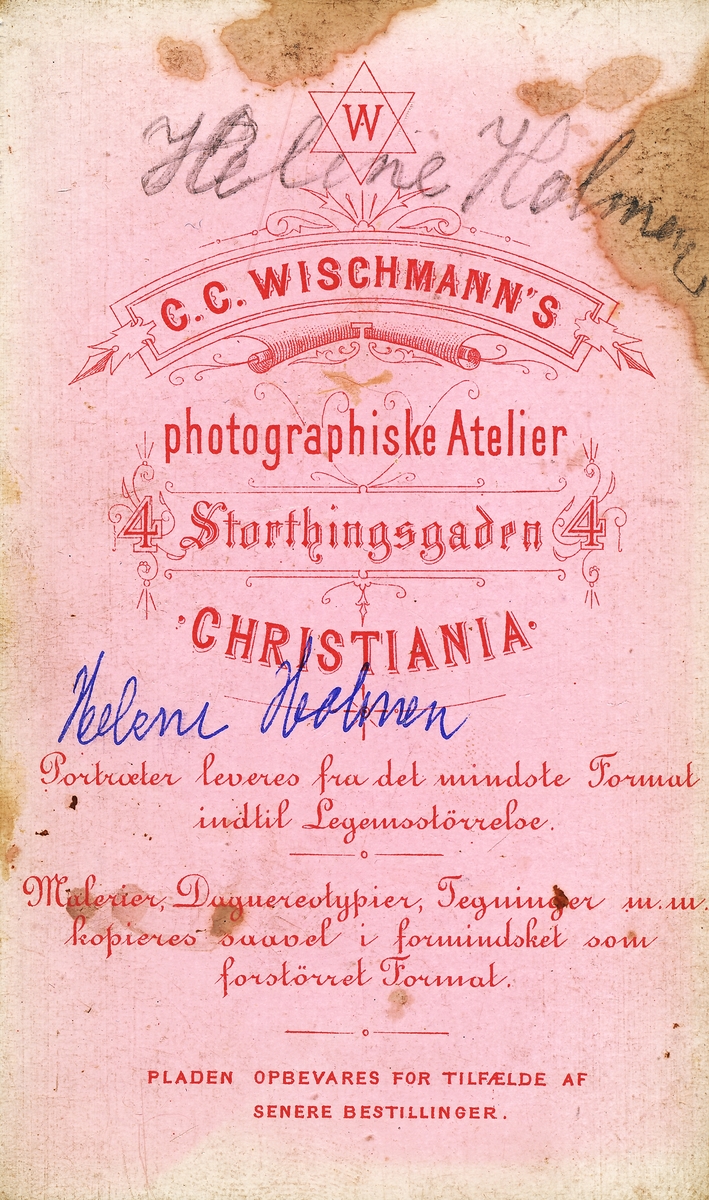 W
Helene Holmen
C. C. WISCHMANN'S
photographiske Atelier
4 Storthingsgaden 4
CHRISTIANIA
Helene Holmen
Portræter leveres fra det mindste Format
indtil Legemsstörrelse.
Malerier, Daguereotypier, Tegninger m.m.
kopieres saavel i formindsket som
forstörret Format.
PLADEN OPBEVARES FOR TILFÆLDE AF
SENERE BESTILLINGER.